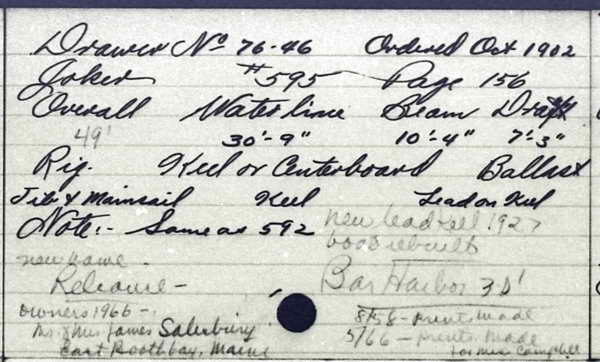 Drawer No 76-46 Ordered Oct 1902
Joker #595 Page 156
Overall Waterline Beam Draft
49' 30'-9" 10'-4" 7'-3"
Rig. Keel or Centerboard Ballast
Jib & Mainsail Keel Lead on Keel
Note:- Same as 592 new lead keel 1927
rebuilt
new name - Bar Harbor 30'
Reliance -
owners 1966 -. 8/58 - prints made
Mr. & Mrs. James Salesbury 5/66 - prints made
East Boothbay, Maine for Mrs. Campbell